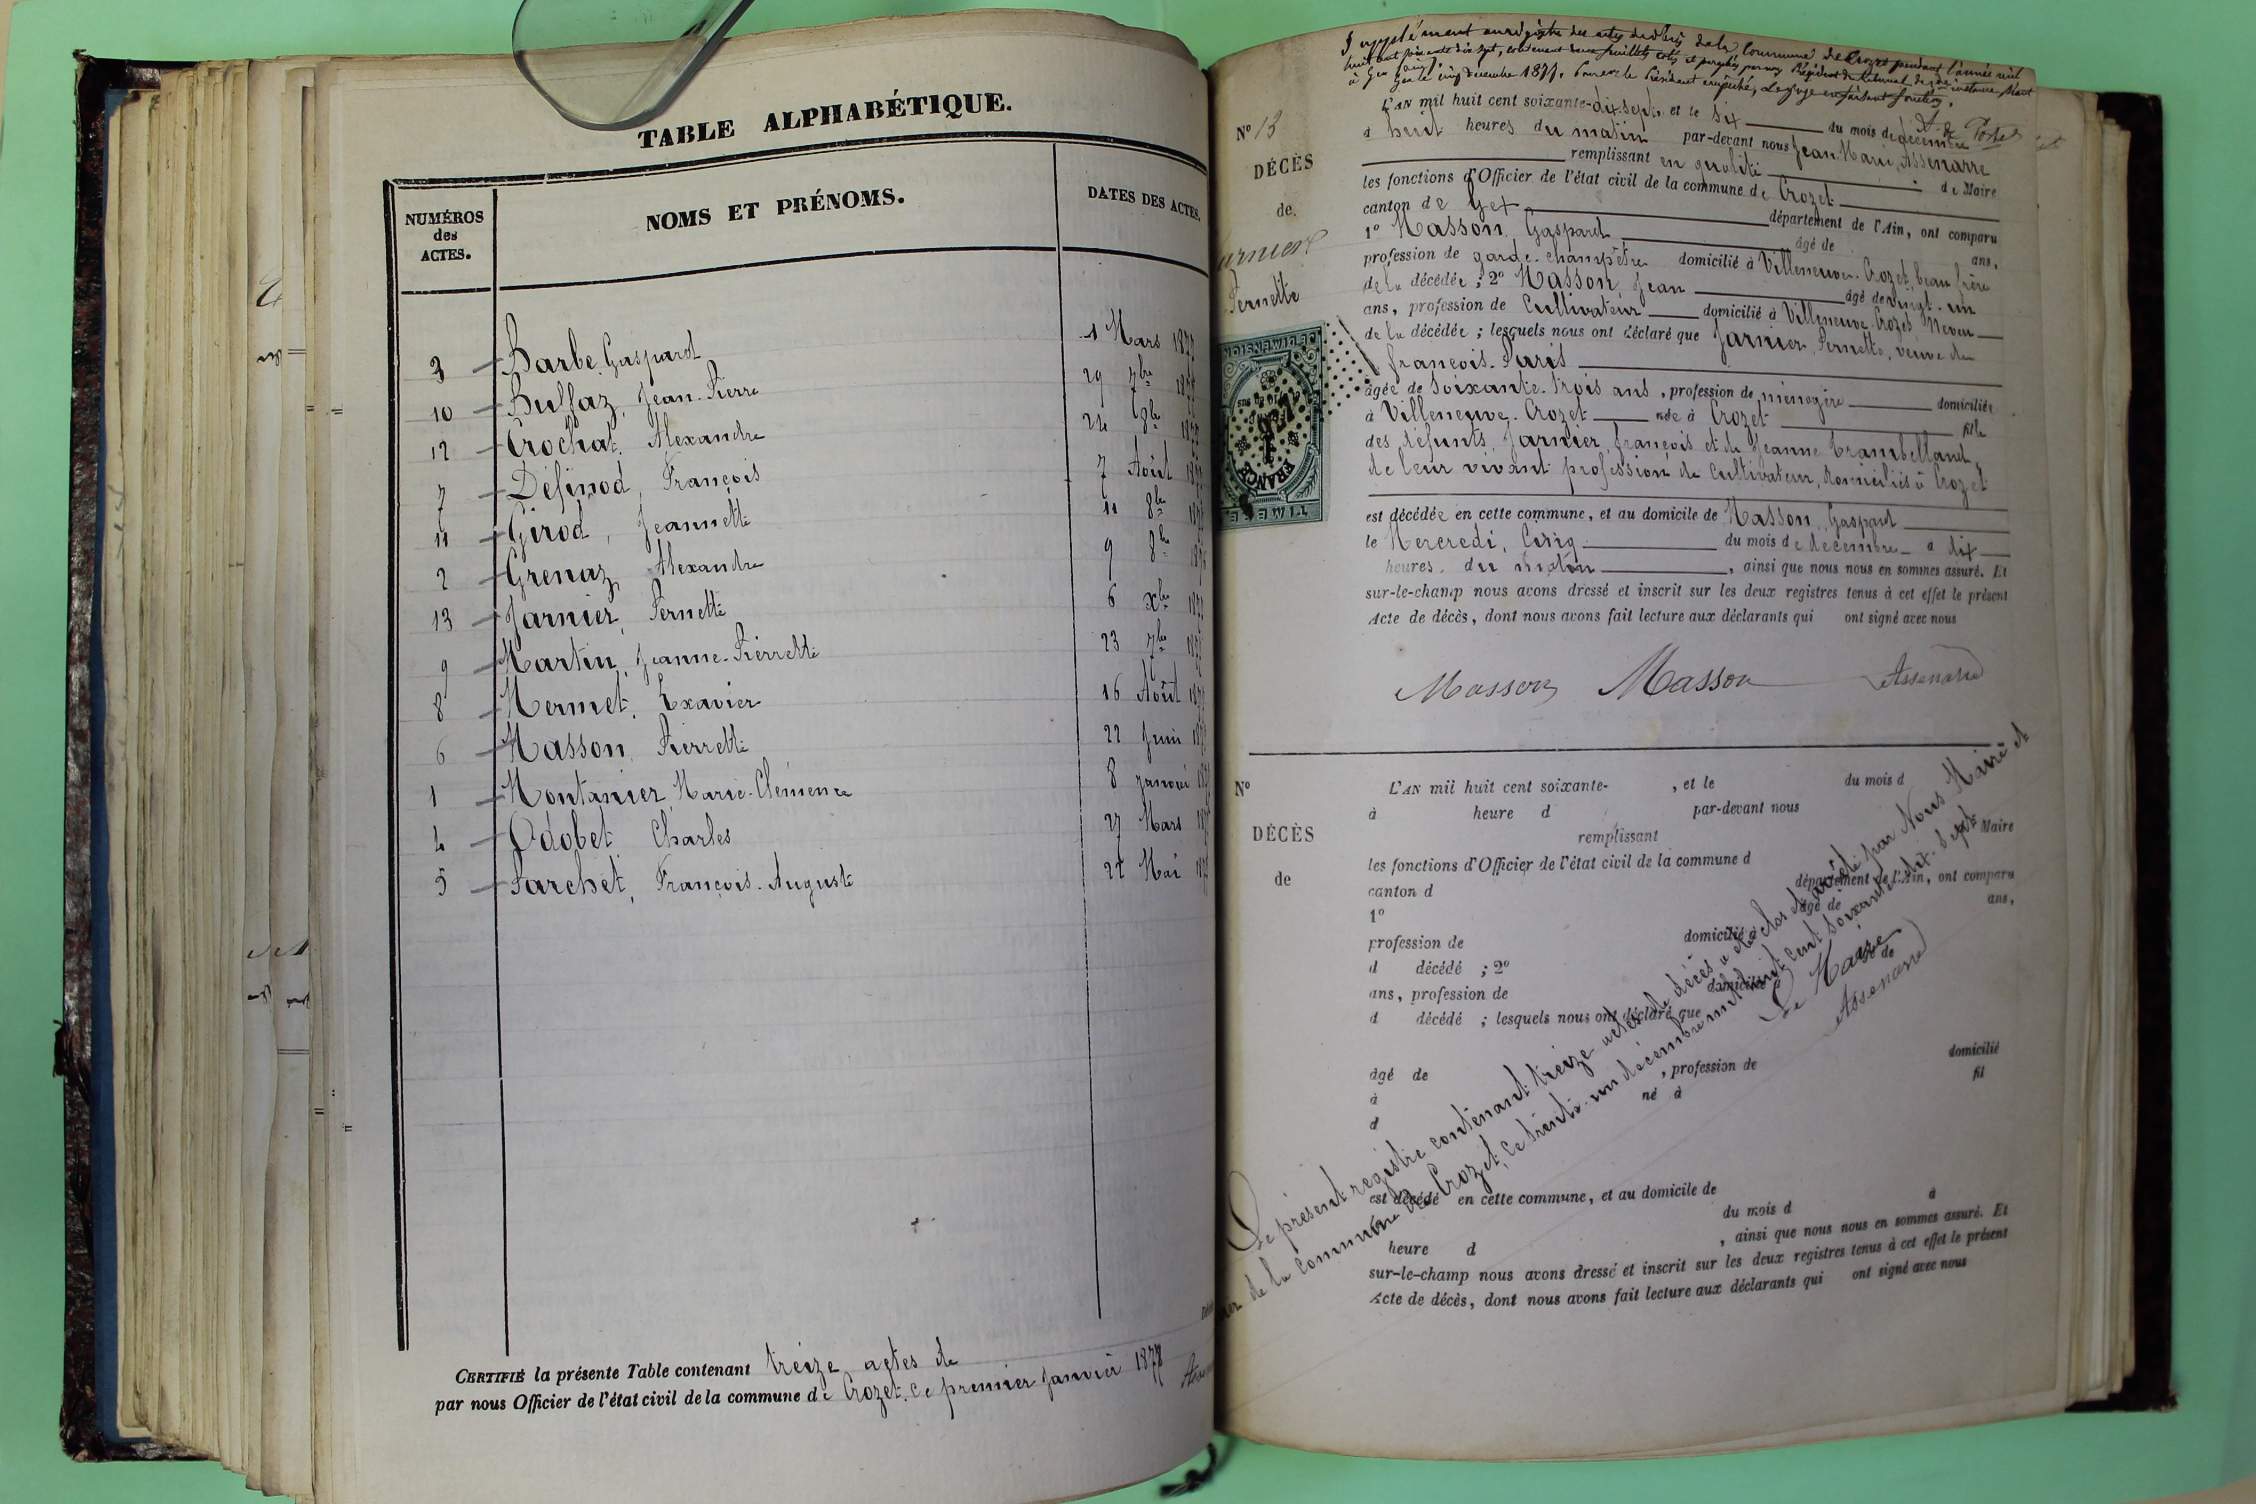 TABLE ALPHABÉTIQUE.
NUMÉROS des ACTES.
NOMS ET PRÉNOMS.
DATES DES ACTES.
3 Barbe Gaspard 1 Mars 1877
10 Bulfaz, Jean-Pierre 29 7bre 1877
12 Crochat, Alexandre 24 8bre 1877
7 Définod, François 7 Août 1877
11 Girod, Jeannette 11 8bre 1877
2 Grenaz, Alexandre 9
13 Jarnier, Pernette 6 Xbre 1877
9 Martin, Jeanne-Pierrette 23 7bre 1877
8 Mermet, Exavier 16 Août 1877
6 Masson, Pierrette 22 Juin 1877
1 Montanier Marie-Clémence 8 janvier 1877
4 Odobet Charles 27 Mars 1877
5 Parchet, François-Auguste 22 Mai 1877
CERTIFIÉ la présente Table contenant treize actes de
par nous Officier de l'état civil de la commune de Crozet, ce premier janvier 1878
Supplément au registre des actes de décès de la Commune de Crozet pendant l'année mil
huit cent soixante dix sept, contenant deux feuillets cotés et paraphés par nous Président du tribunal de 1re instance séant
à Gex
Gex le cinq décembre 1877. Pour le Président empêché, Le Juge en faisant fonctions.
N° 13
DÉCÈS
de
Jarnier
Pernette
L'AN mil huit cent soixante-dix-sept, et le six du mois de décembre
à huit heures du matin par-devant nous Jean-Marie Assenarre
remplissant en qualité de Maire
les fonctions d'Officier de l'état civil de la commune de Crozet
canton de Gex département de l'Ain, ont comparu
1° Masson, Gaspard âgé de ans,
profession de garde-champêtre domicilié à Villeneuve-Crozet beau frère
de la décédée ; 2° Masson, Jean âgé de vingt-un
ans, profession de Cultivateur domicilié à Villeneuve-Crozet Neveu
de la décédée ; lesquels nous ont déclaré que Jarnier, Pernette, veuve de
François-Paris
âgée de soixante-trois ans, profession de ménagère domiciliée
à Villeneuve-Crozet née à Crozet fille
des défunts Jarnier, François et de Jeanne Crambelland,
de leur vivant profession de Cultivateur, domiciliés à Crozet
est décédée en cette commune, et au domicile de Masson, Gaspard
le Mercredi, Cinq du mois de décembre à dix
heures du matin, ainsi que nous nous en sommes assuré. Et
sur-le-champ nous avons dressé et inscrit sur les deux registres tenus à cet effet le présent
Acte de décès, dont nous avons fait lecture aux déclarants qui ont signé avec nous
FRANCE
Masson Masson Assenarre
N°
DÉCÈS
de
L'AN mil huit cent soixante- , et le du mois d
à heure d par-devant nous
remplissant
Maire
les fonctions d'Officier de l'état civil de la commune d
canton d département de l'Ain, ont comparu
1° âgé de ans,
profession de domicilié à
d décédé ; 2° de
ans, profession de domicilié
d décédé ; lesquels nous ont déclaré que
âgé de , profession de domicilié
à né à fil
d
est décédé en cette commune, et au domicile de
du mois d à
heure d , ainsi que nous nous en sommes assuré. Et
sur-le-champ nous avons dressé et inscrit sur les deux registres tenus à cet effet le présent
Acte de décès, dont nous avons fait lecture aux déclarants qui ont signé avec nous
Le présent registre contenant treize actes de décès a été clos et arrêté par Nous Maire et
de la commune de Crozet, ce trente-un décembre mil huit cent soixante-dix-sept
Le Maire
Assenarre